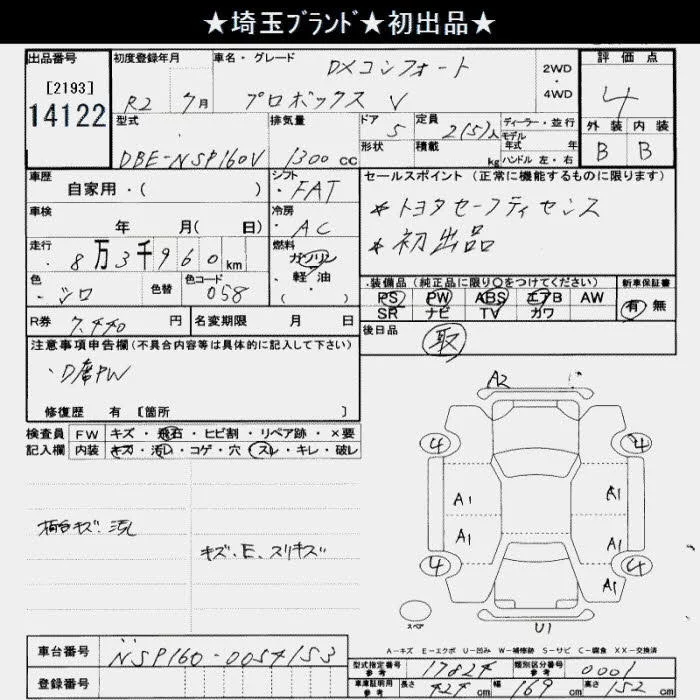 ★埼玉ﾌﾞﾗﾝﾄﾞ★初出品★
出品番号 初度登録年月 車名・グレード DXコンフォート 2WD・4WD 評価点
[2193] R2 7月 プロボックス V 4
14122 型式 排気量 ドア 5 定員 2(5)人 ディーラー・並行 外装 内装
モデル年式 年
DBE-NSP160V 1300cc 形状 積載 kg ハンドル 左・右 B B
車歴 シフト セールスポイント(正常に機能するものに限ります)
自家用・( ) ・FAT
車検 冷房 *トヨタセーフティセンス
年 月( 日) ・AC *初出品
走行 燃料
8万3千960km ガソリン・軽・油・( )
色 色替 色コード 装備品(純正品に限り○をつけてください) 新車保証書
・シロ 058 PS PW ABS エアB AW 有 無
SR ナビ TV カワ
R券 7,440円 名変期限 月 日 後日品 取
注意事項申告欄(不具合内容等は具体的に記入して下さい)
・D席PW
修復歴 有 [箇所 ]
検査員 FW キズ・飛石・ヒビ割・リペア跡・×要
記入欄 内装 キズ・汚れ・コゲ・穴・スレ・キレ・破レ
A2
4 4
A1 A1
A1 A1
4 4
A1
荷台キズ、汚レ
キズ・E、スリキズ
スペア
U1
A-キズ E-エクボ U-凹み W-補修跡 S-サビ C-腐食 XX-交換済
車台番号 NSP160-0054153
型式指定番号 参考 17824 類別区分番号 参考 0001
登録番号 車庫証明用 参考 長さ 424cm 幅 169cm 高さ 152cm